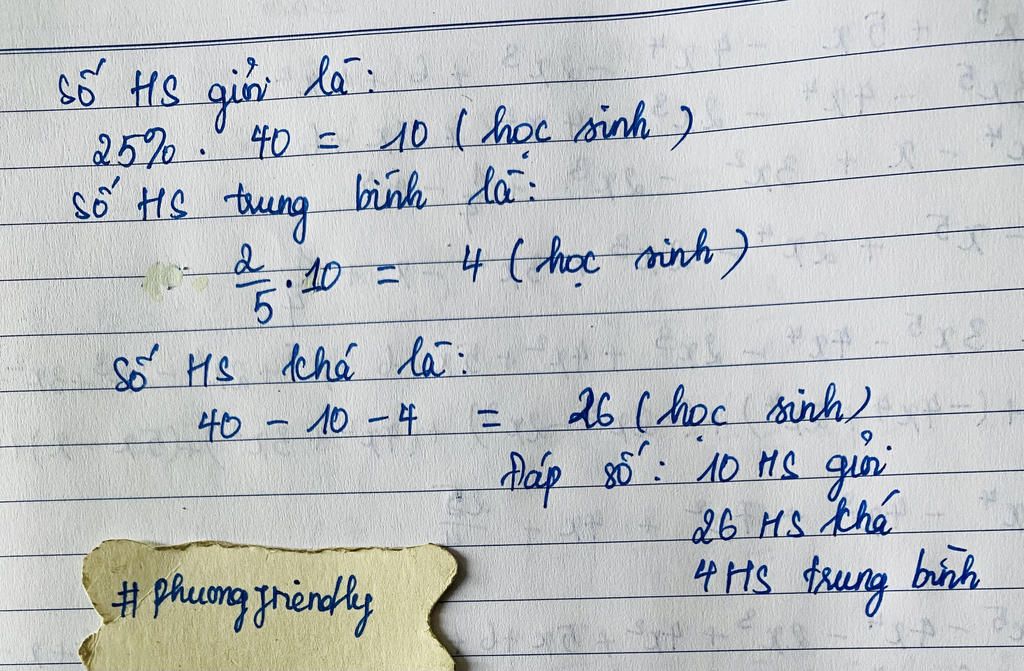 Số HS giỏi là:
25% . 40 = 10 ( học sinh )
Số HS trung bình là:
2/5 . 10 = 4 ( học sinh )
Số HS khá là:
40 - 10 - 4 = 26 ( học sinh )
Đáp số: 10 HS giỏi
26 HS khá
4 HS trung bình
# phuong friendly